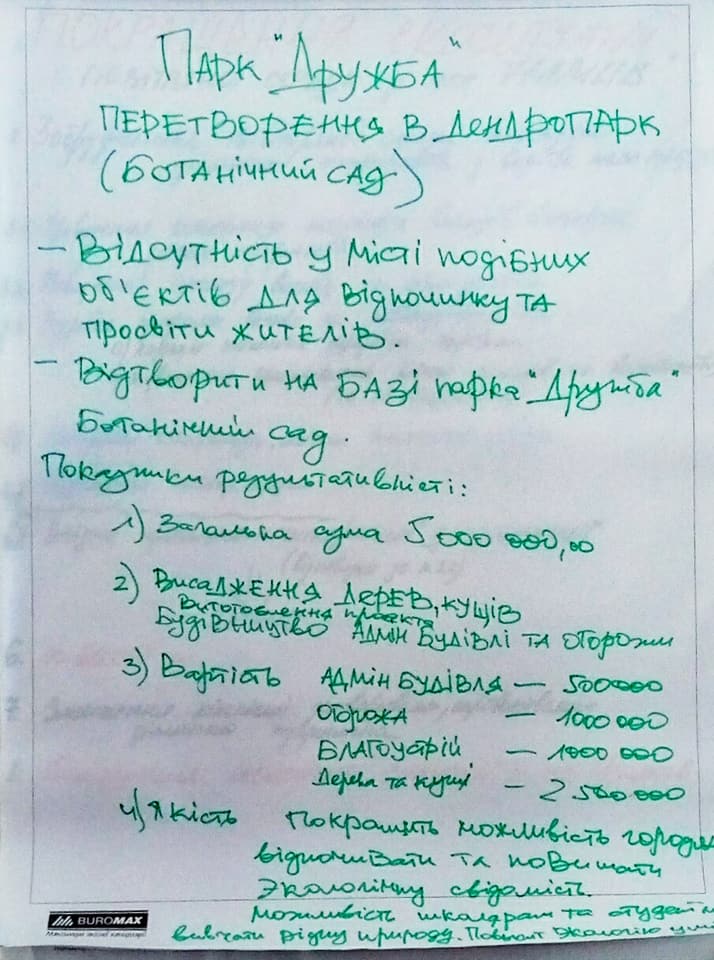 Парк "Дружба"
перетворення в дендропарк
(ботанічний сад)
– Відсутність у місті подібних
об'єктів для відпочинку та
просвіти жителів.
– Відтворити на базі парка "Дружба"
Ботанічний сад.
Показники результативності:
1) Загальна сума 5 000 000,00
2) Висадження дерев, кущів
Виготовлення проекта
Будівництво адмін будівлі та огорожи
3) Вартість адмін будівля – 500000
огорожа – 1000 000
благоустрій – 1000 000
Дерева та кущі – 2 500 000
4) Якість Покращить можливість
відпочивати та повишати
Экологічну свідомість.
Можливість школярам та
вивчати рідну природу. Экологію
BUROMAX